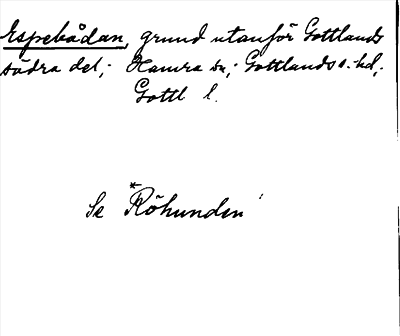 Espebådan, grund utanför Gottlands
södra del; Hamra sn; Gottlands s. hd,
Gottl l.
Se *Röhunden